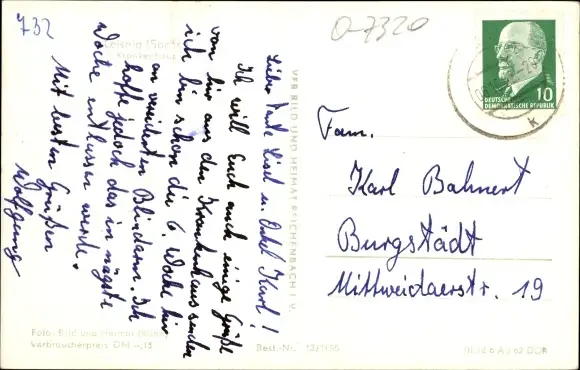 732
O-7320
Leisnig (Sachs
Krankenhaus
Liebe Tante Liesel u. Onkel Karl!
Ich will Euch auch einige Grüße
von hir aus den Krankenhaus senden
ich bin schon die 6. Woche hir
an vereiterten Blinddarm. Ich
hoffe jedoch das in nägste
Woche entlassen werde.
Mit besten Grüßen
Wolfgang
Foto: Bild und Heimat
Verbraucherpreis DM -,15
VEB BILD UND HEIMAT REICHENBACH I. V.
Best.-Nr.
DDR
10
DEUTSCHE
DEMOKRATISCHE REPUBLIK
K
Fam.
Karl Bahnert
Burgstädt
Mittweidaerstr. 19